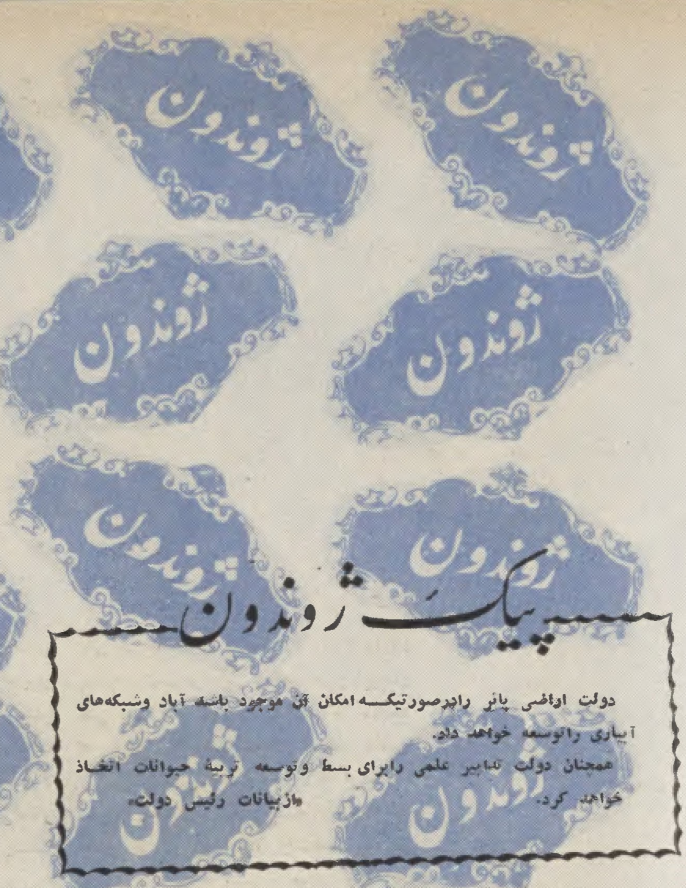 ژوندون
ژوندون
ژوندون
ژوندون
ژوندون
ژوندون
پیک ژوندون
دولت اراضی بائر رادرصورتیکه امکان آن موجود باشد آباد وشبکه‌های
آبیاری راتوسعه خواهد داد.
همچنان دولت تدابیر علمی رابرای بسط وتوسعه تربیهٔ حیوانات اتخاذ
خواهد کرد. «ازبیانات رئیس دولت»
ژوندون
ژوندون